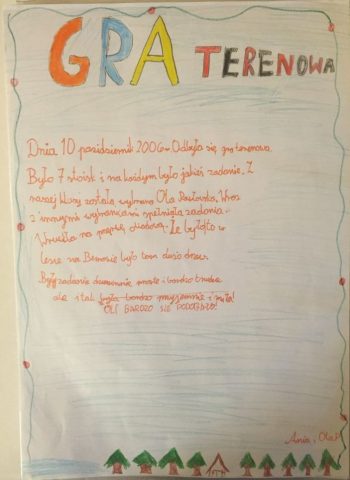 GRA TERENOWA
Dnia 10 pazidziernik 2006r Odbyła się gra terenowa.
Było 7 stoisk i na każdym było jakieś zadanie. Z
naszej klasy została wybrana Ola Pawłowska. Wraz
z innymi wybrancami spełniała zadania.
na Że było to w
lesie na Bemowie było tam dużo drzew.
Były zadania proste i bardzo trudne
ale i tak było bardzo przyjemnie i miło!
OLI BARDZO SIĘ PODOBAŁO!
Ania i Ola